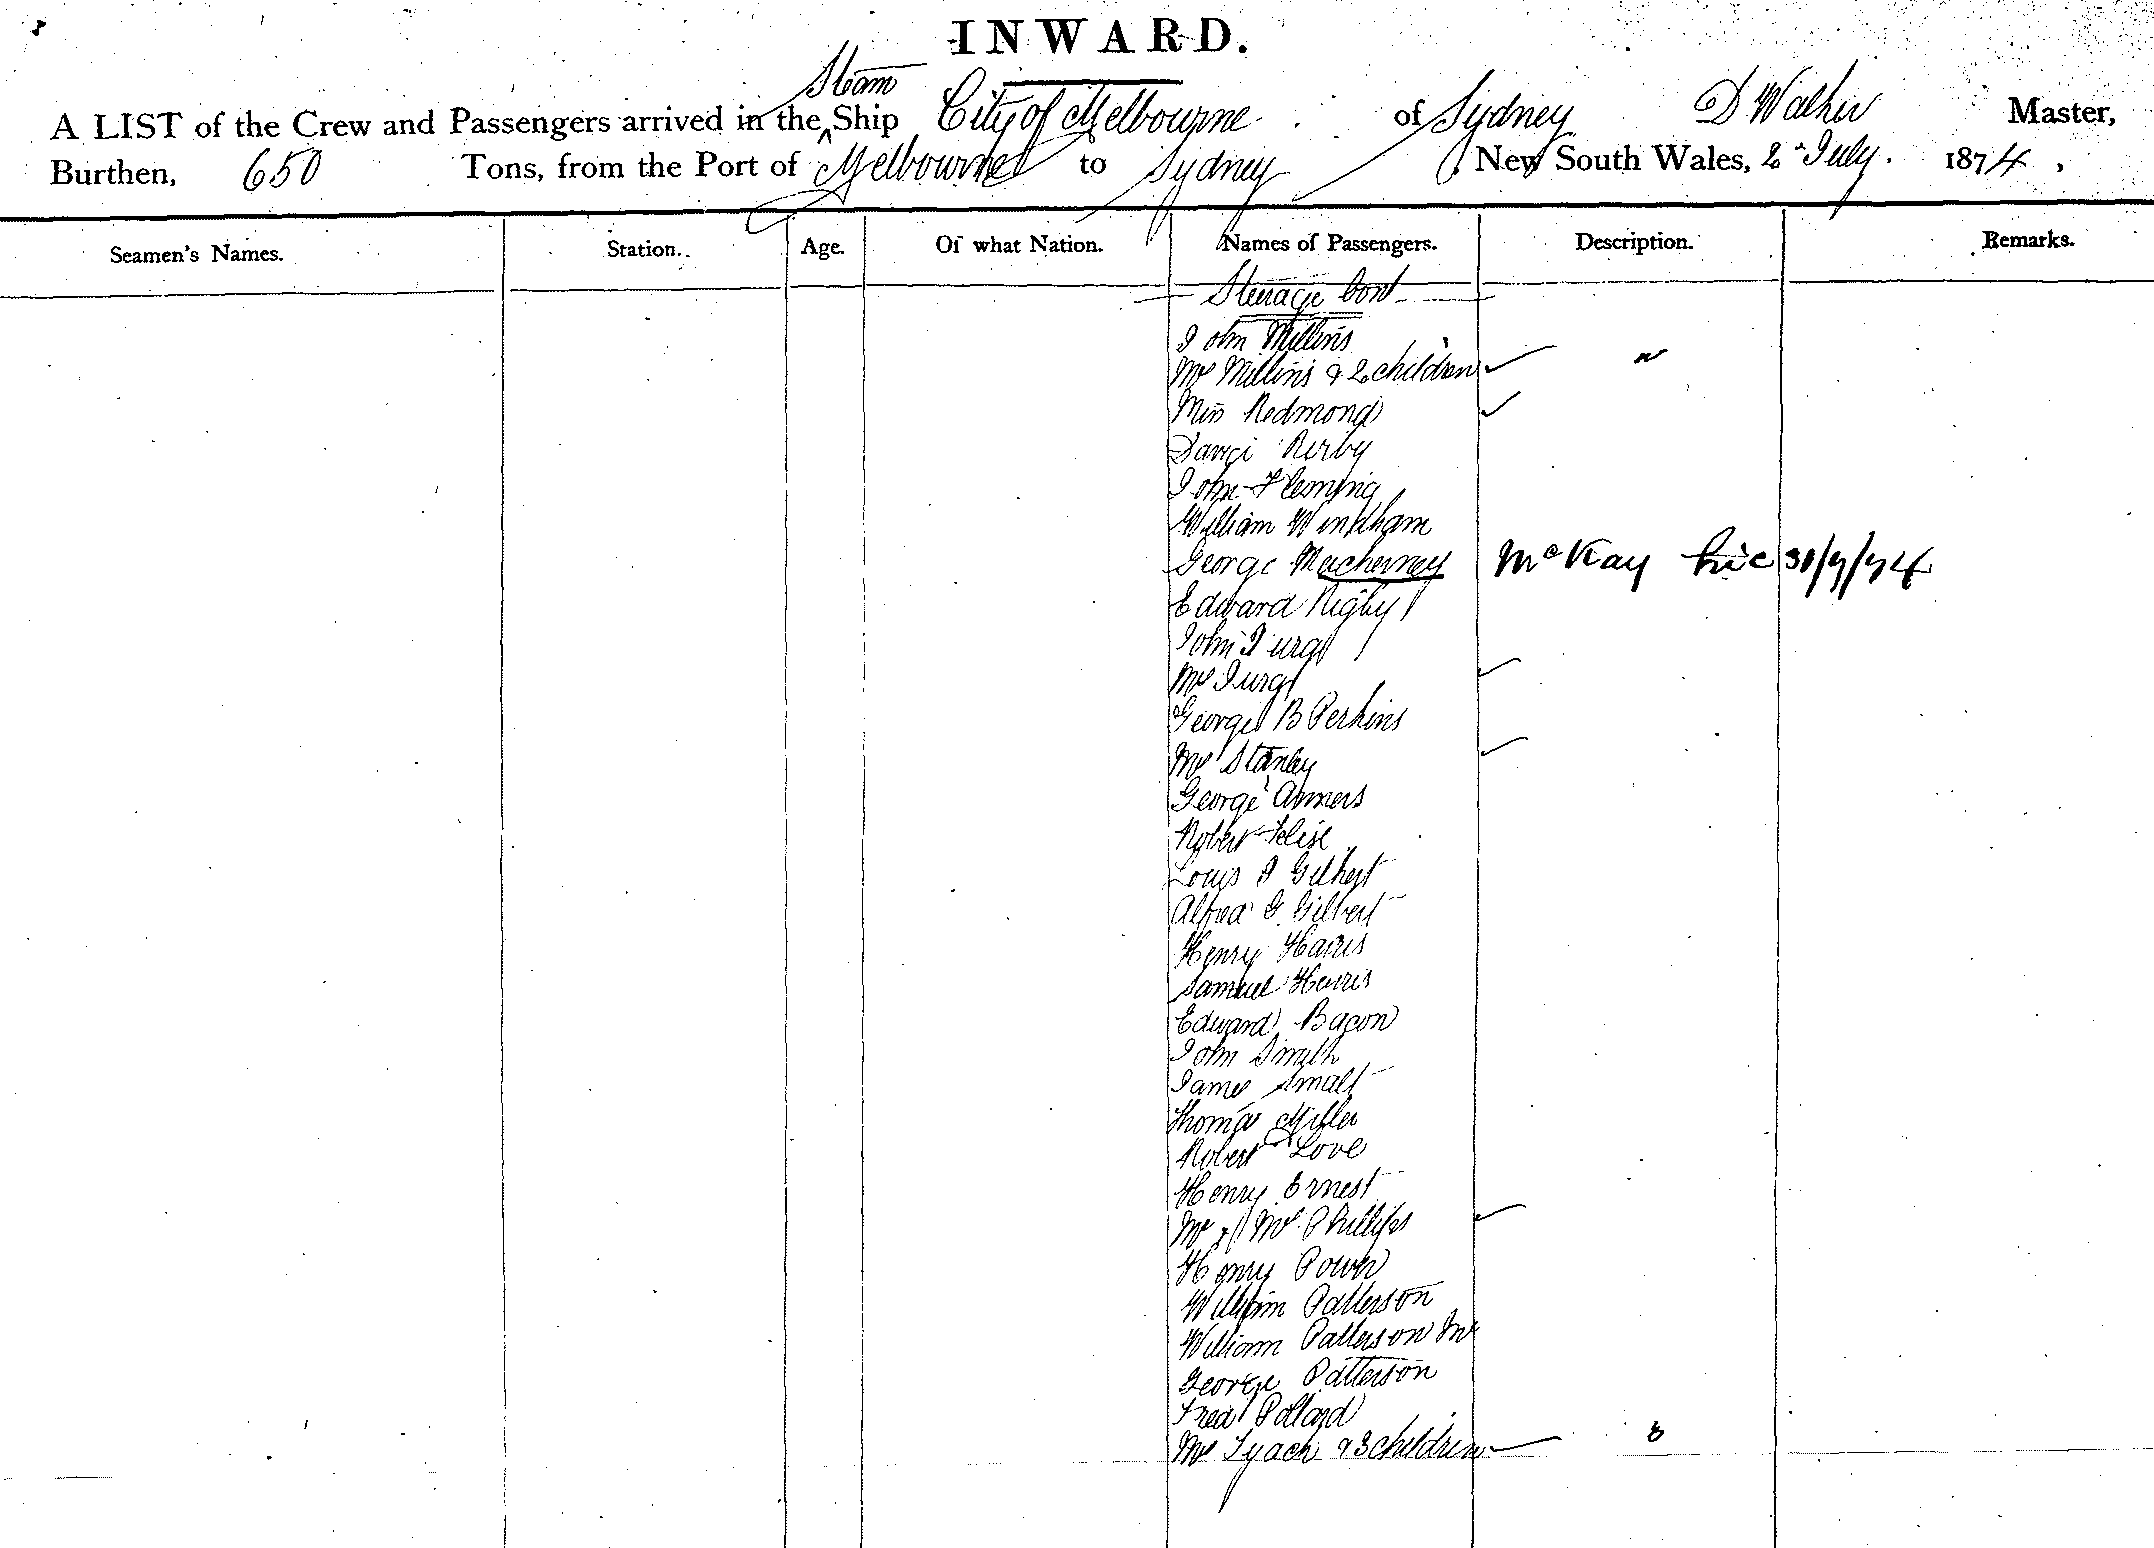 INWARD.
A LIST of the Crew and Passengers arrived in the Steam Ship City of Melbourne of Sydney D Walker Master,
Burthen, 650 Tons, from the Port of Melbourne to Sydney New South Wales, 2 July. 1874,
Seamen's Names. Station. Age. Of what Nation. Names of Passengers. Description. Remarks.
Steerage Cont
John Millins
Mrs Millins & 2 children
Miss Redmond
Kirby
John Fleming
William Winkham
George McKay
Edward Rigby
John
Mrs
George B Perkins
Mrs Stanley
George
Robert
Louis J Gilbert
Alfred G. Gilbert
Henry Harris
Samuel Harris
Edward Bacon
John Smith
James Small
Thomas Miller
Robert Love
Henry Ernest
Mr & Mrs Phillips
Henry Power
William Patterson
William Patterson Jnr
George Patterson
Fred Pollard
Mrs & 3 children 3